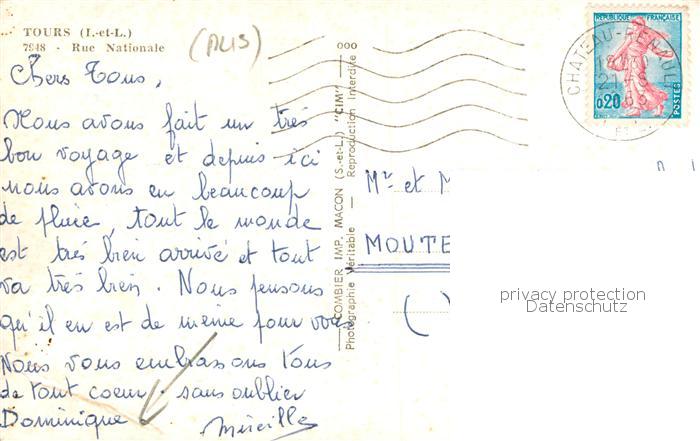 TOURS (I.-et-L.)
7948 - Rue Nationale
Chers Tous,
Nous avons fait un très
bon voyage et depuis ici
nous avons eu beaucoup
de pluie, tout le monde
est très bien arrivé et tout
va très bien. Nous pensons
qu'il en est de même pour vous
Nous vous embrassons tous
de tout coeur. sans oublier
Dominique
Mireille
COMBIER IMP. MACON (S.-et-L.) "CIM"
Photographie Véritable — Reproduction Interdite
REPUBLIQUE FRANÇAISE
0,20
POSTES
CHATEAU-RENAULT
Mr et M
MOUTE
(
privacy protection
Datenschutz